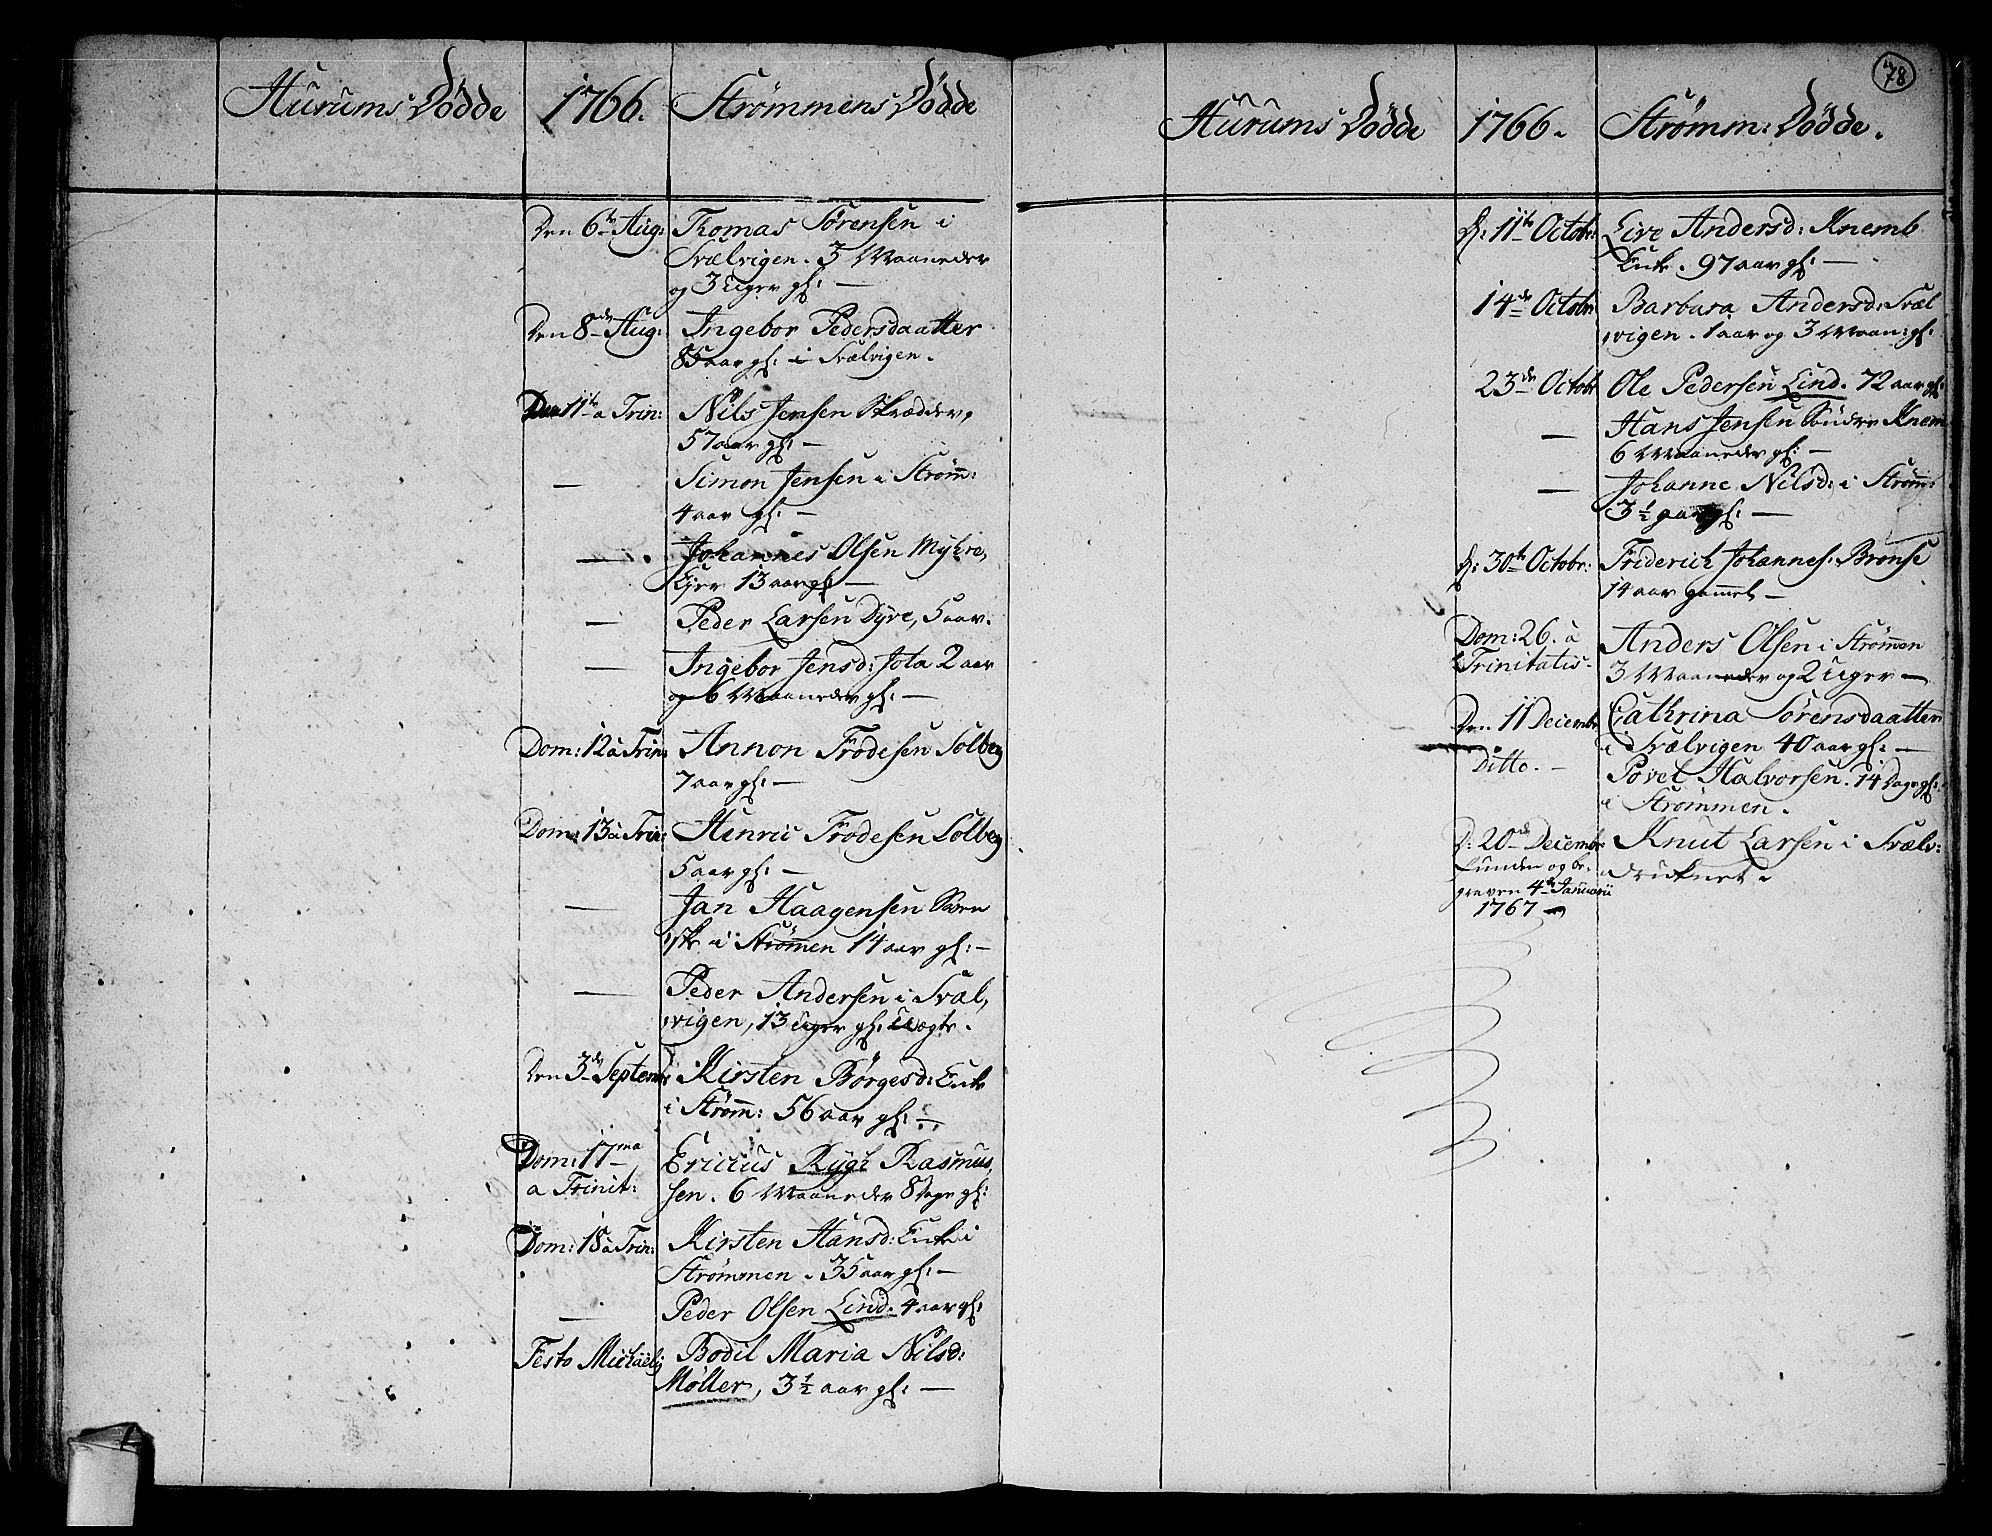 Hurums Dødde 1766. Strømmens Dødde
Den 6te Aug: Thomas Sørensen i
Svælvigen. 3 Maaneder
og 3 Uger gl: —
Den 8de Aug: Ingebor Pedersdaatter
85 aar gl: i Svælvigen.
Dom 11te a Trin: Nils Jensen Skrædder,
57 aar gl: —
— Simon Jensen i Strøm:
4 aar gl: —
— Johannes Olsen Myhre,
Ejer 13 aar gl: —
— Peder Larsen Dyre, 5 aar.
— Ingebor Jensd: Jota 2 aar
og 6 Maaneder gl: —
Dom: 12 a Trin: Annon Frodesen Solberg
7 aar gl: —
Dom: 13 a Trin: Henric Frodesen Solberg
5 aar gl: —
— Jan Haagensen
i Strømmen 14 aar gl: —
— Peder Andersen i Svæl,
vigen, 13 Uger gl: Uægte.
Den 3de Septembr Kirsten Børgesd: Enke
i Strøm: 56 aar gl: —
Dom: 17ma Ericius Rygh Rasmus,
a Trinit: sen. 6 Maaneder 8 Dage gl:
Dom: 18 a Trin: Kirsten Hansd: Enke i
Strømmen. 35 aar gl: —
— Peder Olsen Lind. 4 aar gl:
Festo Michaelis Bodil Maria Nilsd:
Møller, 3 1/2 aar gl: —
78
Hurums Dødde 1766. Strømm: Dødde.
D: 11te Octobr: Live Andersd: Knemb
Enke. 97 aar gl: —
14de Octobr: Barbara Andersd: Svæl
vigen. 1 aar og 3 Maan: gl:
23de Octobr Ole Pedersen Lind. 72 aar gl:
— Hans Jensen Søndre Knem
6 Maaneder gl: —
— Johanne Nilsd: i Strøm:
3 1/2 aar gl: —
D: 30te Octobr: Friderich Johannes: Bronse
14 aar gammel —
Dom: 26. a Anders Olsen i Strømmen
Trinitatis- 3 Maaneder og 2 Uger —
Den 11 Decembr Cathrina Sørensdaatter
i Svælvigen 40 aar gl: —
Ditto. — Povel Halvorsen. 14 Dage gl:
i Strømmen.
D: 20de Decembr Knut Larsen i Svælv:
funden og be- druknet.
graven 4de Januarii
1767 —